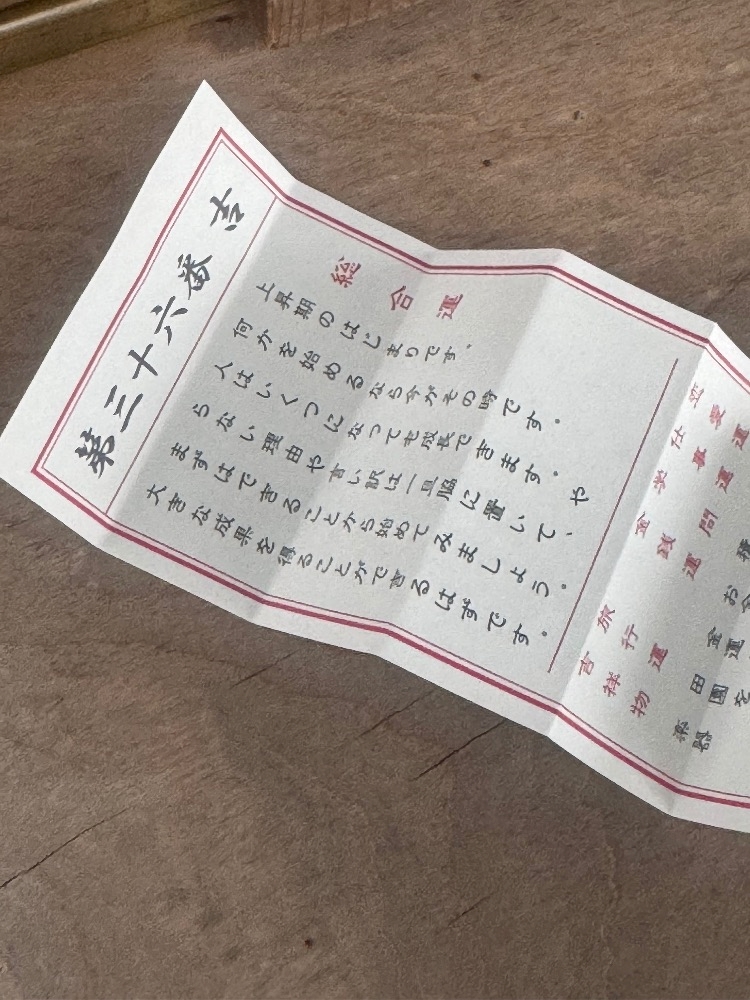 第三十六番 吉
総合運
上昇期のはじまりです。
何かを始めるなら今がその時です。
人はいくつになっても成長できます。や
らない理由や言い訳は一旦脇に置いて、
まずはできることから始めてみましょう。
大きな成果を得ることができるはずです。
恋愛運
仕事運
学問運
金銭運
お金
金運
旅行運
田園を
吉祥物
楽器